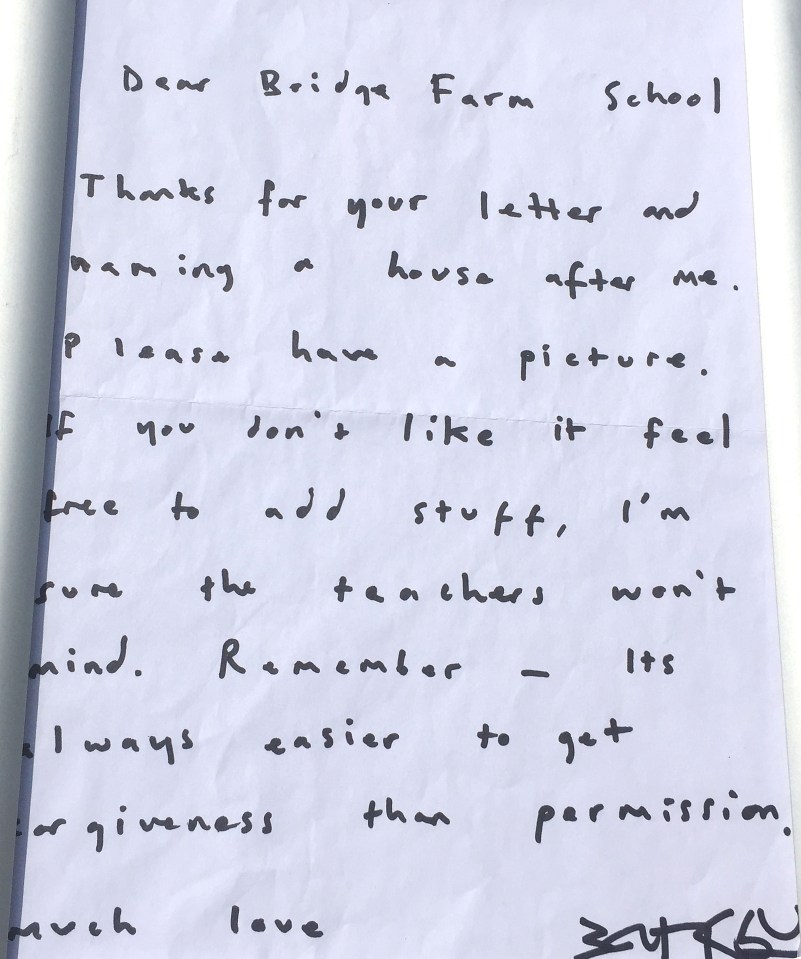 Dear Bridge Farm School
Thanks for your letter and
naming a house after me.
Please have a picture.
If you don't like it feel
free to add stuff, I'm
sure the teachers won't
mind. Remember – Its
always easier to get
forgiveness than permission.
Much love